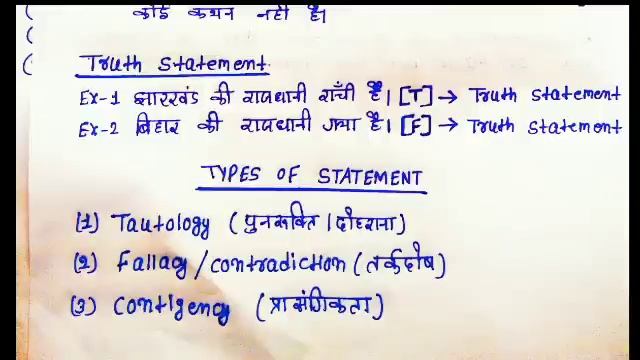 कोई कथन नहीं है।
(
(
Truth Statement
Ex-1 झारखंड की राजधानी राँची है। [T] → Truth Statement
Ex-2 बिहार की राजधानी गया है। [F] → Truth Statement
TYPES OF STATEMENT
(1) Tautology (पुनरूक्ति / दोहराना)
(2) Fallacy/contradiction (तर्कदोष)
(3) Contigency (प्रासंगिकता)